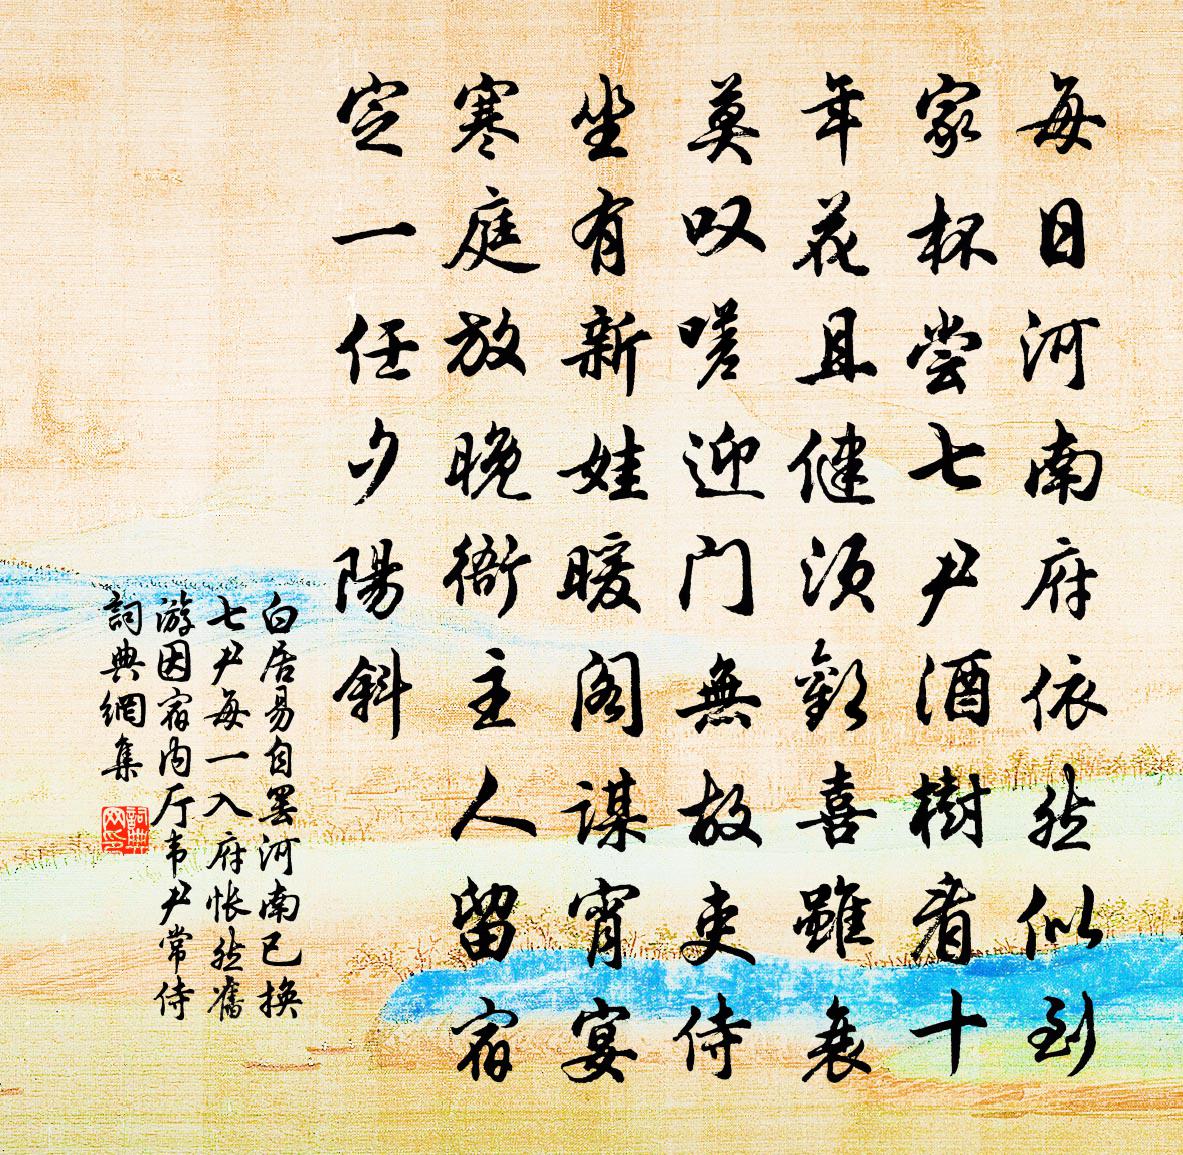 每日河南府依然似到
家杯尝七尹酒樹看十
年花且健须歡喜雖衰
莫叹嗟迎门無故吏侍
坐有新娃暖阁谋宵宴
寒庭放晚衙主人留宿
定一任夕陽斜
白居易自罢河南已换
七尹每一入府怅然舊
游因宿内厅韦尹常侍
詞典網集
詞典
网印